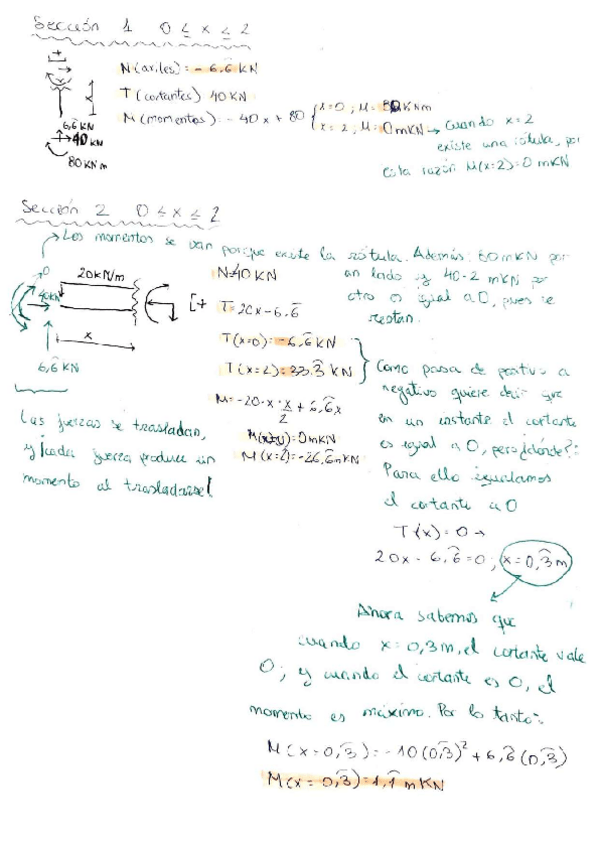 Sección 1 0 ≤ x ≤ 2
N (axiles) = - 6,6̂ KN
T (cortantes) 40 KN
M (momentos) = - 40 x + 80 { x=0; M= 80 KNm
x = 2; M= 0 mKN → Cuando x = 2
existe una rótula, por
esta razón M(x=2)=0 mKN
6,6̂ KN
40 KN
80 KN m
Sección 2 0 ≤ x ≤ 2
Los momentos se van porque existe la rótula. Además: 80 mKN por
un lado y 40·2 mKN por
otro es igual a 0, pues se
restan.
0
20KN/m
40KN
x
6,6̂ KN
N=40 KN
T= 20x - 6,6̂
T(x=0)= -6,6̂ KN
T(x=2)= 33.3̂ KN
M= -20·x·x/2 + 6,6̂x
M(x=0)= 0 mKN
M(x=2)= -26,6̂ mKN
Las fuerzas se trasladan,
y ¡cada fuerza produce un
momento al trasladarse!
Como pasa de positivo a
negativo quiere decir que
en un instante el cortante
es igual a 0, pero ¿dónde?:
Para ello igualamos
el cortante a 0
T(x) = 0 →
20x - 6,6̂ = 0; x = 0,3̂ m
Ahora sabemos que
cuando x = 0,3̂ m, el cortante vale
0; y cuando el cortante es 0, el
momento es máximo. Por lo tanto:
M(x = 0,3̂) = -10(0,3̂)² + 6,6̂ (0,3̂)
M(x = 0,3̂) = 1,1̂ mKN